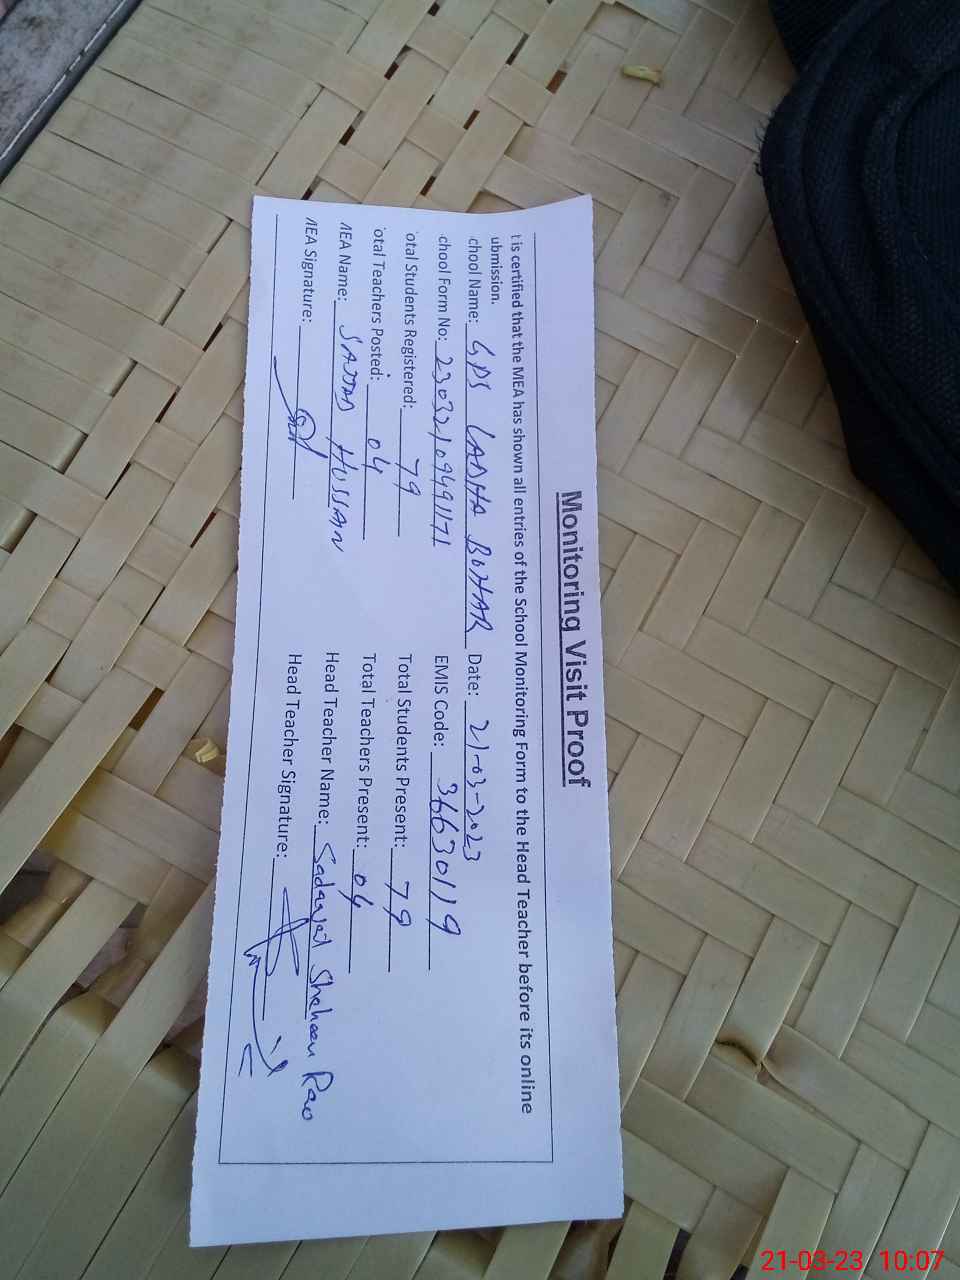 Monitoring Visit Proof
t is certified that the MEA has shown all entries of the School Monitoring Form to the Head Teacher before its online
ubmission.
chool Name: GPS LADHA BOHAR Date: 21-03-2023
chool Form No: 230321094991171 EMIS Code: 36630119
otal Students Registered: 79 Total Students Present: 79
otal Teachers Posted: 04 Total Teachers Present: 04
MEA Name: SAJJAD HUSSAN Head Teacher Name: Sadaqat Shaheen Rao
MEA Signature: Head Teacher Signature:
21-03-23 10:07